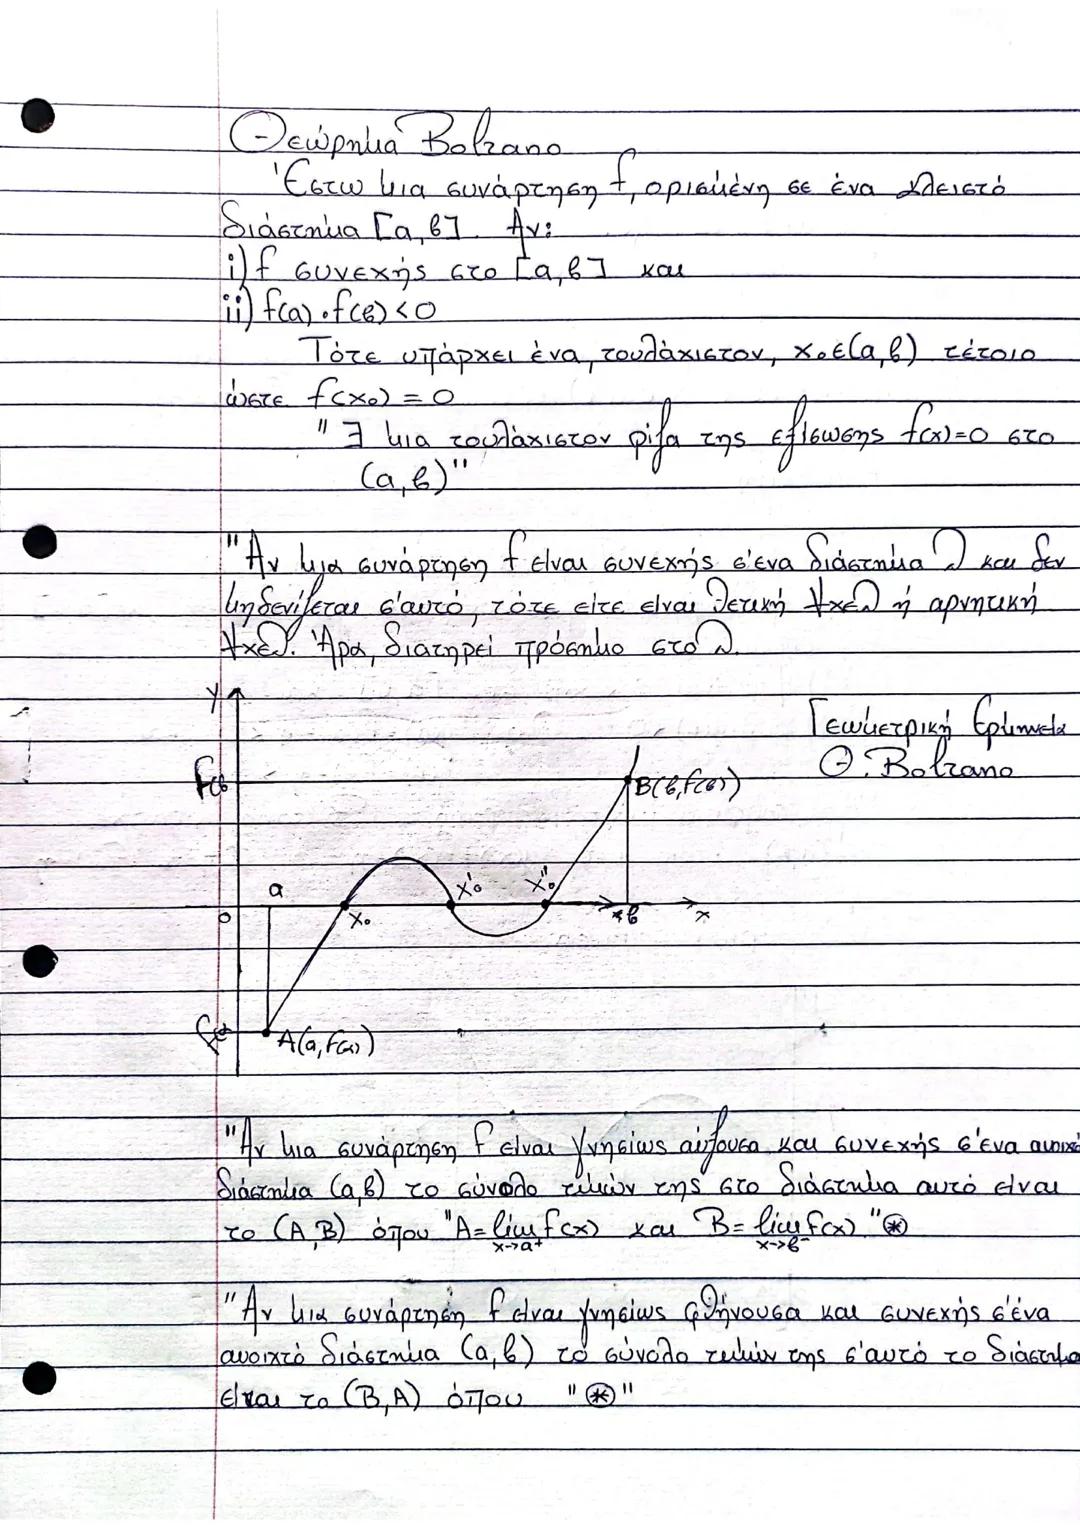 Θεώρημα Bolzano
Έστω μια συνάρτηση f, ορισμένη σε ένα κλειστό
διάστημα [α,β]. Αν:
i) f συνεχής στο [α,β] και
ii) f(α)·f(β)<0
Τότε υπάρχει ένα, τουλάχιστον, x₀∈(α,β) τέτοιο
ώστε f(x₀)=0
"∃ μια τουλάχιστον ρίζα της εξίσωσης f(x)=0 στο
(α,β)"
"Αν μια συνάρτηση f είναι συνεχής σ'ένα διάστημα Δ και δεν
μηδενίζεται σ'αυτό, τότε είτε είναι θετική ∀x∈Δ ή αρνητική
∀x∈Δ. Άρα, διατηρεί πρόσημο στο Δ.
y
Γεωμετρική Ερμηνεία
Θ. Bolzano
f(β)
B(β,f(β))
α
x₀'
x₀''
0
x₀
β
x
A(α,f(α))
"Αν μια συνάρτηση f είναι γνησίως αύξουσα και συνεχής σ'ένα ανοιχτό
διάστημα (α,β) το σύνολο τιμών της στο διάστημα αυτό είναι
το (Α,Β) όπου "Α=lim f(x) και Β=lim f(x)" ⊛
x→α⁺ x→β⁻
"Αν μια συνάρτηση f είναι γνησίως φθήνουσα και συνεχής σ'ένα
ανοιχτό διάστημα (α,β) το σύνολο τιμών της σ'αυτό το διάστημα
είναι το (Β,Α) όπου "⊛"